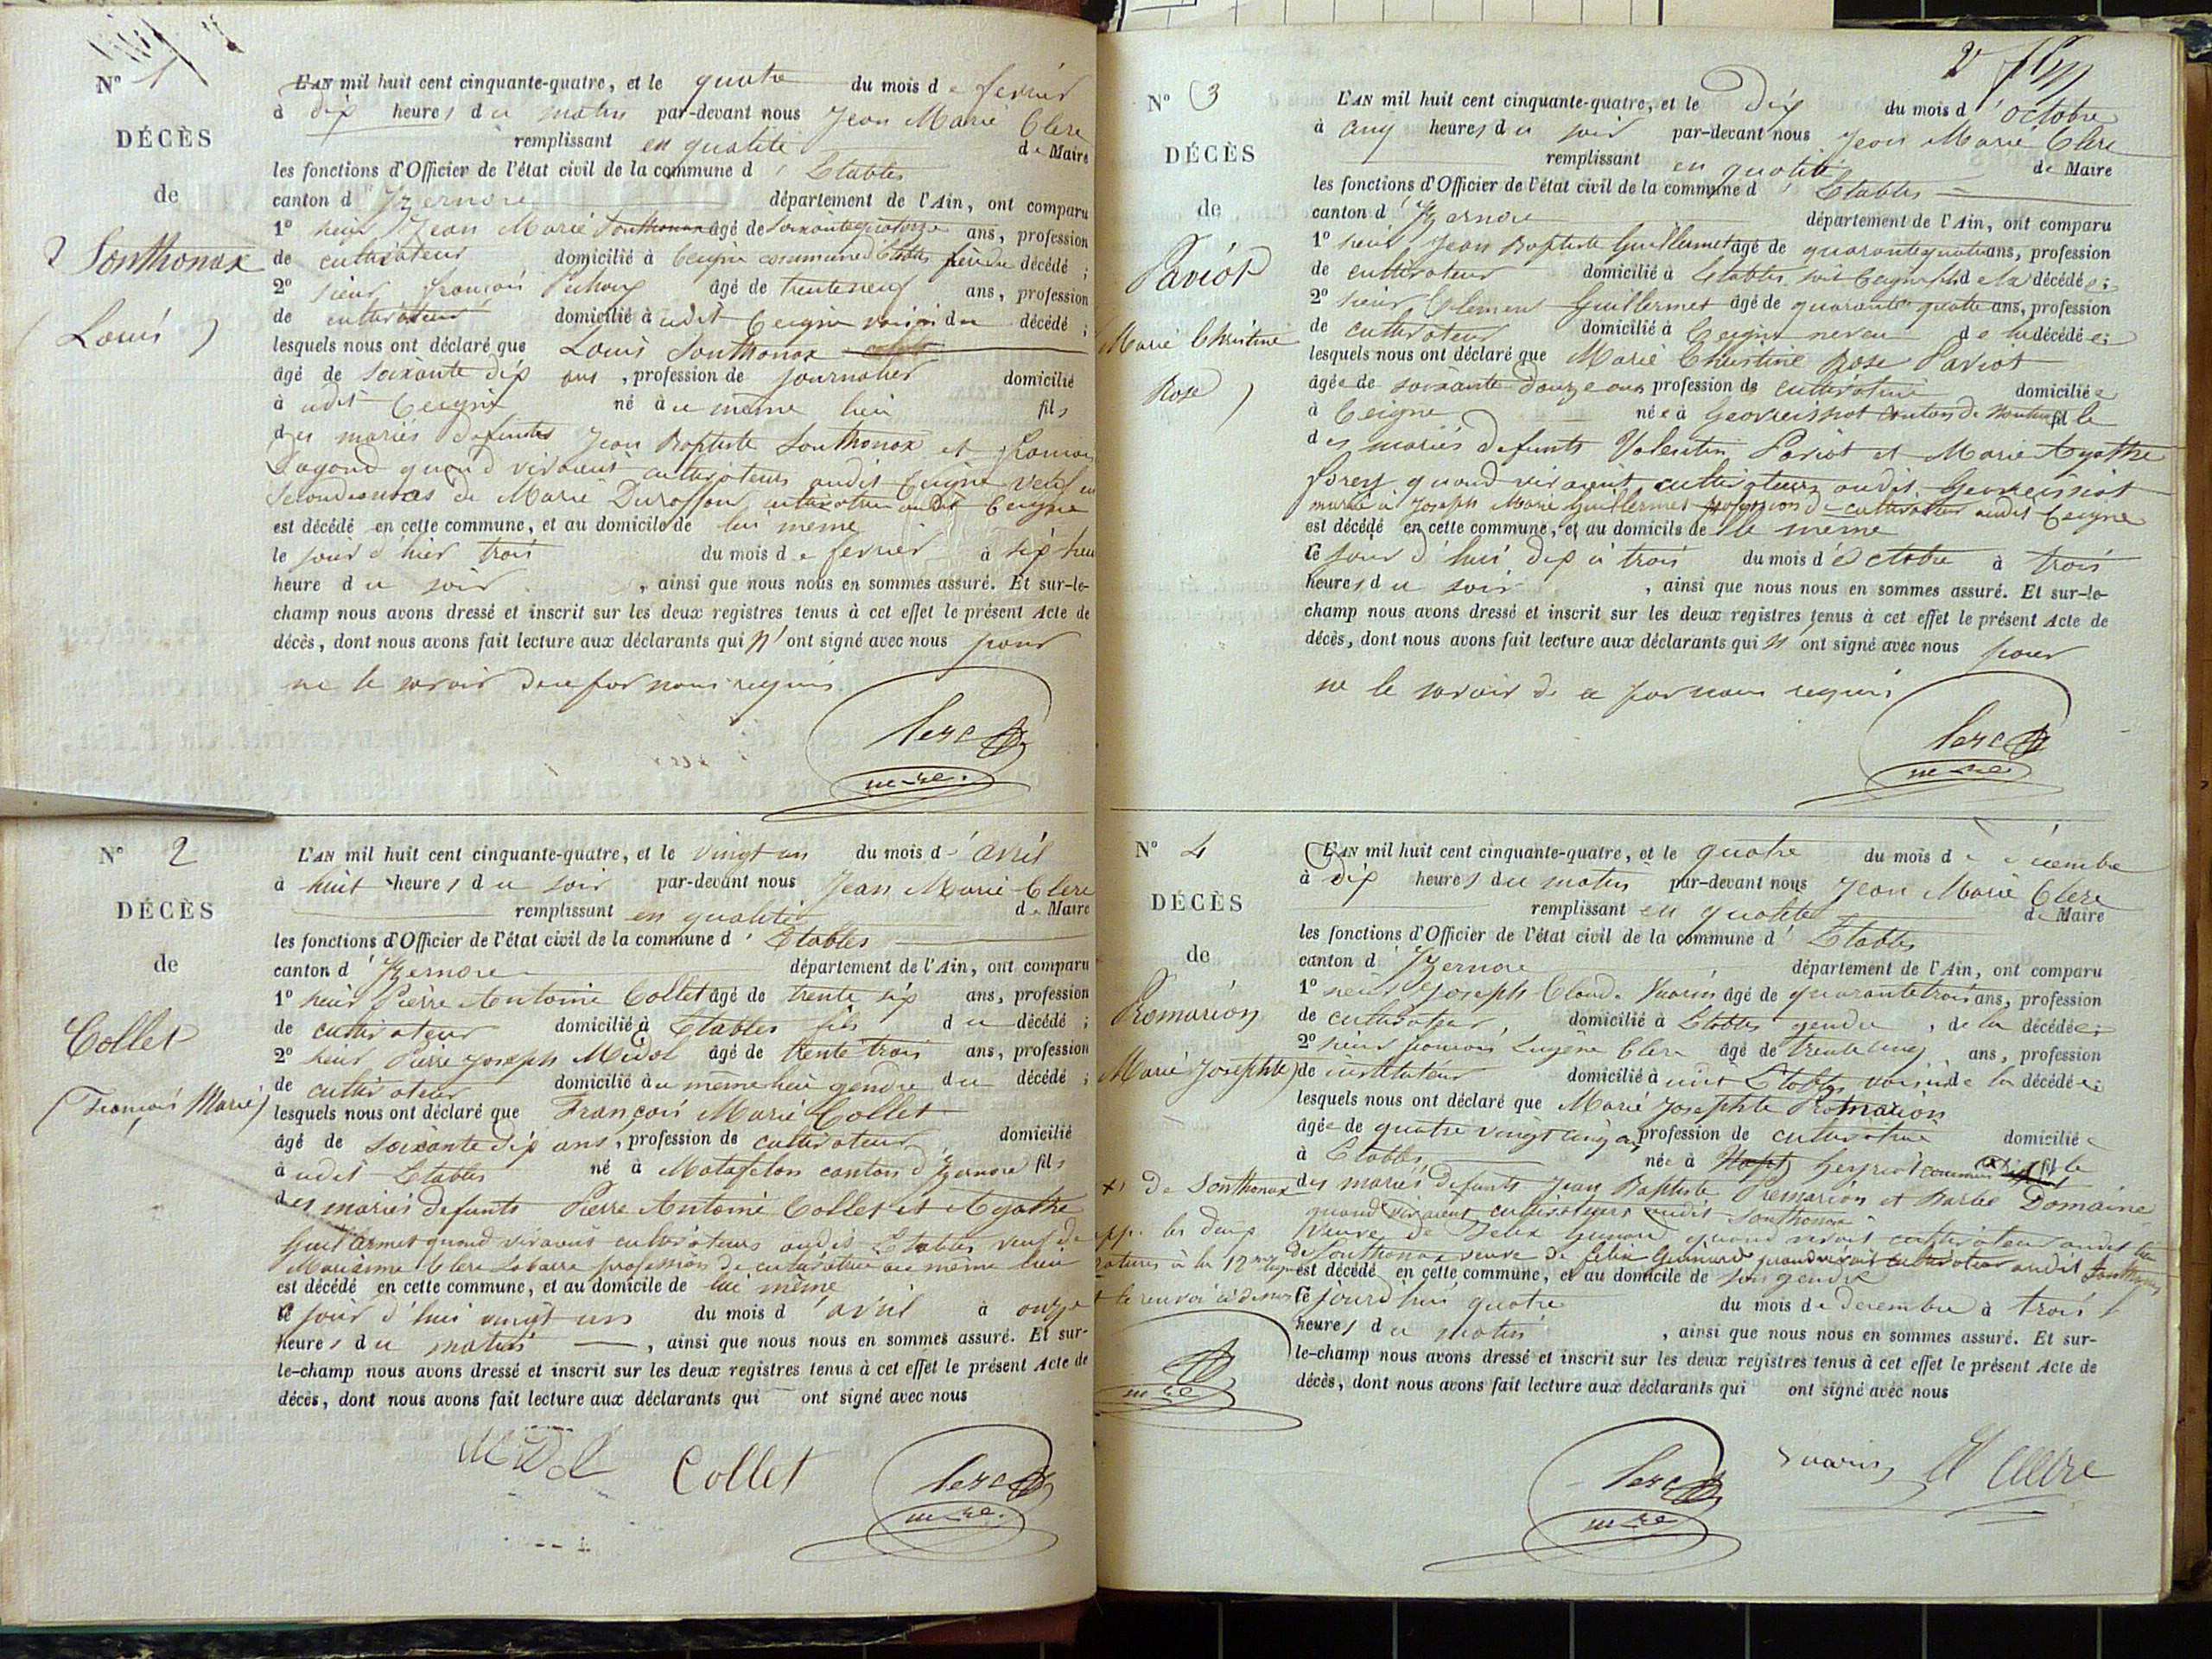 N° 1
DÉCÈS
de
Sonthonax
(Louis)
L'AN mil huit cent cinquante-quatre, et le quatre du mois de fevrier
à dix heures du matin par-devant nous Jean Marie Clerc
remplissant en qualité de Maire
les fonctions d'Officier de l'état civil de la commune d'Etables
canton d'Izernore département de l'Ain, ont comparu
1° sieur Jean Marie Sonthonax âgé de soixantequatorze ans, profession
de cultivateur domicilié à Ceigne commune d'Etables frère du décédé ;
2° sieur François âgé de trenteneuf ans, profession
de cultivateur domicilié à udit Ceigne voisin du décédé ;
lesquels nous ont déclaré que Louis Sonthonax
âgé de soixante dix ans, profession de journalier domicilié
à udit Ceigne né à u même lieu fils
des mariés defunts Jean Baptiste Sonthonax et
quand vivaient cultivateurs audit Ceigne veuf en
de Marie Duraffour cultivatrice audit Ceigne
est décédé en cette commune, et au domicile de lui même
le jour d'hier trois du mois de fevrier à
heure du soir, ainsi que nous nous en sommes assuré. Et sur-le-
champ nous avons dressé et inscrit sur les deux registres tenus à cet effet le présent Acte de
décès, dont nous avons fait lecture aux déclarants qui n'ont signé avec nous pour
ne le savoir de ce par nous requis
Clerc
maire
N° 2
DÉCÈS
de
Collet
(François Marie)
L'AN mil huit cent cinquante-quatre, et le vingt un du mois d'avril
à huit heures du soir par-devant nous Jean Marie Clerc
remplissant en qualité de Maire
les fonctions d'Officier de l'état civil de la commune d'Etables
canton d'Izernore département de l'Ain, ont comparu
1° sieur Pierre Antoine Collet âgé de trente six ans, profession
de cultivateur domicilié à Etables fils du décédé ;
2° sieur Pierre Joseph Midol âgé de trente trois ans, profession
de cultivateur domicilié à u même lieu gendre du décédé ;
lesquels nous ont déclaré que François Marie Collet
âgé de soixante dix ans, profession de cultivateur domicilié
à udit Etables né à Matafelon canton d'Izernore fils
des mariés defunts Pierre Antoine Collet et Agathe
Guillermet quand vivaient cultivateurs audit Etables veuf de
Marianne Clerc Labarre profession de cultivatrice au même lieu
est décédé en cette commune, et au domicile de lui même
le jour d'hui vingt un du mois d'avril à onze
heures du matin, ainsi que nous nous en sommes assuré. Et sur-
le-champ nous avons dressé et inscrit sur les deux registres tenus à cet effet le présent Acte de
décès, dont nous avons fait lecture aux déclarants qui ont signé avec nous
Midol Collet Clerc
maire
2
N° 3
DÉCÈS
de
Paviot
Marie Christine
Rose)
L'AN mil huit cent cinquante-quatre, et le dix du mois d'octobre
à cinq heures du soir par-devant nous Jean Marie Clerc
remplissant en qualité de Maire
les fonctions d'Officier de l'état civil de la commune d'Etables
canton d'Izernore département de l'Ain, ont comparu
1° sieur Jean Baptiste Guillermet âgé de quarantequatre ans, profession
de cultivateur domicilié à Etables de la décédée ;
2° sieur Clement Guillermet âgé de quarante quatre ans, profession
de cultivateur domicilié à Ceigne neveu de la décédée ;
lesquels nous ont déclaré que Marie Christine Rose Paviot
âgée de soixante douze ans profession de cultivatrice domiciliée
à Ceigne née à Geovreissiat canton de Nantua fille
des mariés defunts Valentin Paviot et Marie Agathe
Forey quand vivaient cultivateurs audit Geovreissiat
mariée à Joseph Marie Guillermet profession de cultivateur audit Ceigne
est décédé en cette commune, et au domicile de le même
le jour d'hui dix à trois du mois d'octobre à trois
heures du soir, ainsi que nous nous en sommes assuré. Et sur-le-
champ nous avons dressé et inscrit sur les deux registres tenus à cet effet le présent Acte de
décès, dont nous avons fait lecture aux déclarants qui n'ont signé avec nous pour
ne le savoir de ce par nous requis
Clerc
maire
N° 4
DÉCÈS
de
Romarion
Marie Josephte)
L'AN mil huit cent cinquante-quatre, et le quatre du mois de décembre
à dix heures du matin par-devant nous Jean Marie Clerc
remplissant en qualité de Maire
les fonctions d'Officier de l'état civil de la commune d'Etables
canton d'Izernore département de l'Ain, ont comparu
1° sieur Joseph Claude Vuarin âgé de quarantetrois ans, profession
de cultivateur, domicilié à Etables gendre, de la décédée ;
2° sieur François Eugene Clerc âgé de trente cinq ans, profession
de instituteur domicilié à udit Etables voisin de la décédée ;
lesquels nous ont déclaré que Marie Josephte Romarion
âgée de quatre vingt cinq ans profession de cultivatrice domiciliée
à Etables née à commune fille
des mariés defunts Jean Baptiste Romarion et Barbe Domaine
quand vivaient cultivateurs audit Sonthonax
Veuve de Felix quand vivait cultivateur audit lieu
de Sonthonax veuve de Felix quand vivait cultivateur audit Sonthonax
est décédé en cette commune, et au domicile de son gendre
le jourd'hui quatre du mois de decembre à trois
heures du matin, ainsi que nous nous en sommes assuré. Et sur-
le-champ nous avons dressé et inscrit sur les deux registres tenus à cet effet le présent Acte de
décès, dont nous avons fait lecture aux déclarants qui ont signé avec nous
x de Sonthonax
app. les deux
ratures à la 12me ligne
et le renvoi ci dessus
maire
Clerc
maire
Vuarin E Clerc